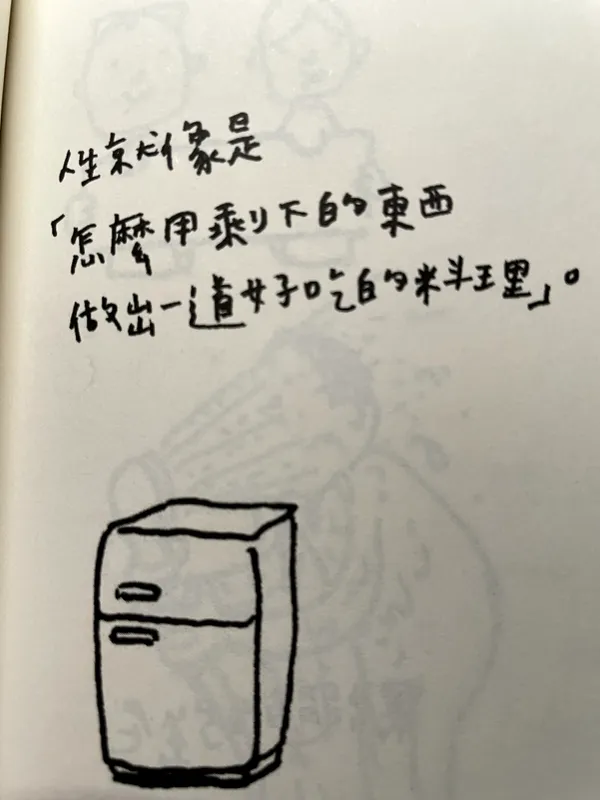 人生就像是
「怎麼用剩下的東西
做出一道好吃的料理」。